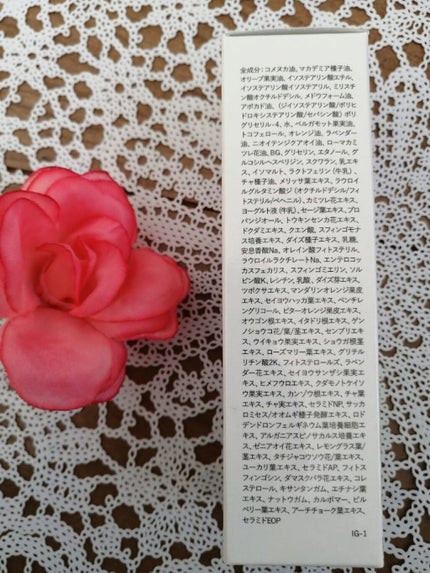 全成分：コメヌカ油、マカデミア種子油、
オリーブ果実油、イソステアリン酸エチル、
イソステアリン酸イソステアリル、ミリスチ
ン酸オクチルドデシル、メドウフォーム油、
アボカド油、（ジイソステアリン酸/ポリヒ
ドロキシステアリン酸/セバシン酸）ポリ
グリセリル-4、水、ベルガモット果実油、
トコフェロール、オレンジ油、ラベンダー
油、ニオイテンジクアオイ油、ローマカミ
ツレ花油、BG、グリセリン、エタノール、グ
ルコシルヘスペリジン、スクワラン、乳エキ
ス、イソマルト、ラクトフェリン（牛乳）、
チャ種子油、メリッサ葉エキス、ラウロイ
ルグルタミン酸ジ（オクチルドデシル/フィ
トステリル/ベヘニル）、カミツレ花エキス、
ヨーグルト液（牛乳）、セージ葉エキス、プロ
パンジオール、トウキンセンカ花エキス、
ドクダミエキス、クエン酸、スフィンゴモナ
ス培養エキス、ダイズ種子エキス、乳糖、
安息香酸Na、オレイン酸フィトステリル、
ラウロイルラクチレートNa、エンテロコッ
カスフェカリス、スフィンゴミエリン、ソル
ビン酸K、レシチン、乳酸、ダイズ芽エキス、
ツボクサエキス、マンダリンオレンジ果皮
エキス、セイヨウハッカ葉エキス、ペンチレ
ングリコール、ビターオレンジ果皮エキス、
オウゴン根エキス、イタドリ根エキス、ゲン
ノショウコ花/葉/茎エキス、センブリエキ
ス、ウイキョウ果実エキス、ショウガ根茎エ
キス、ローズマリー葉エキス、グリチルリ
チン酸2K、フィトステロールズ、ラベン
ダー花エキス、セイヨウサンザシ果実エキ
ス、ヒメフウロエキス、クダモノトケイソ
ウ果実エキス、カンゾウ根エキス、チャ葉
エキス、チャ実エキス、セラミドNP、サッカ
ロミセス/オオムギ種子発酵エキス、ロド
デンドロンフェルギネウム葉培養細胞エ
キス、アルガニアスピノサカルス培養エキ
ス、ゼニアオイ花エキス、レモングラス葉/
茎エキス、タチジャコウソウ花/葉エキス、
ユーカリ葉エキス、セラミドAP、フィトス
フィンゴシン、ダマスクバラ花エキス、コレ
ステロール、キサンタンガム、エチナシ葉
エキス、ナットウガム、カルボマー、ビル
ベリー葉エキス、アーチチョーク葉エキス、
セラミドEOP
IG-1